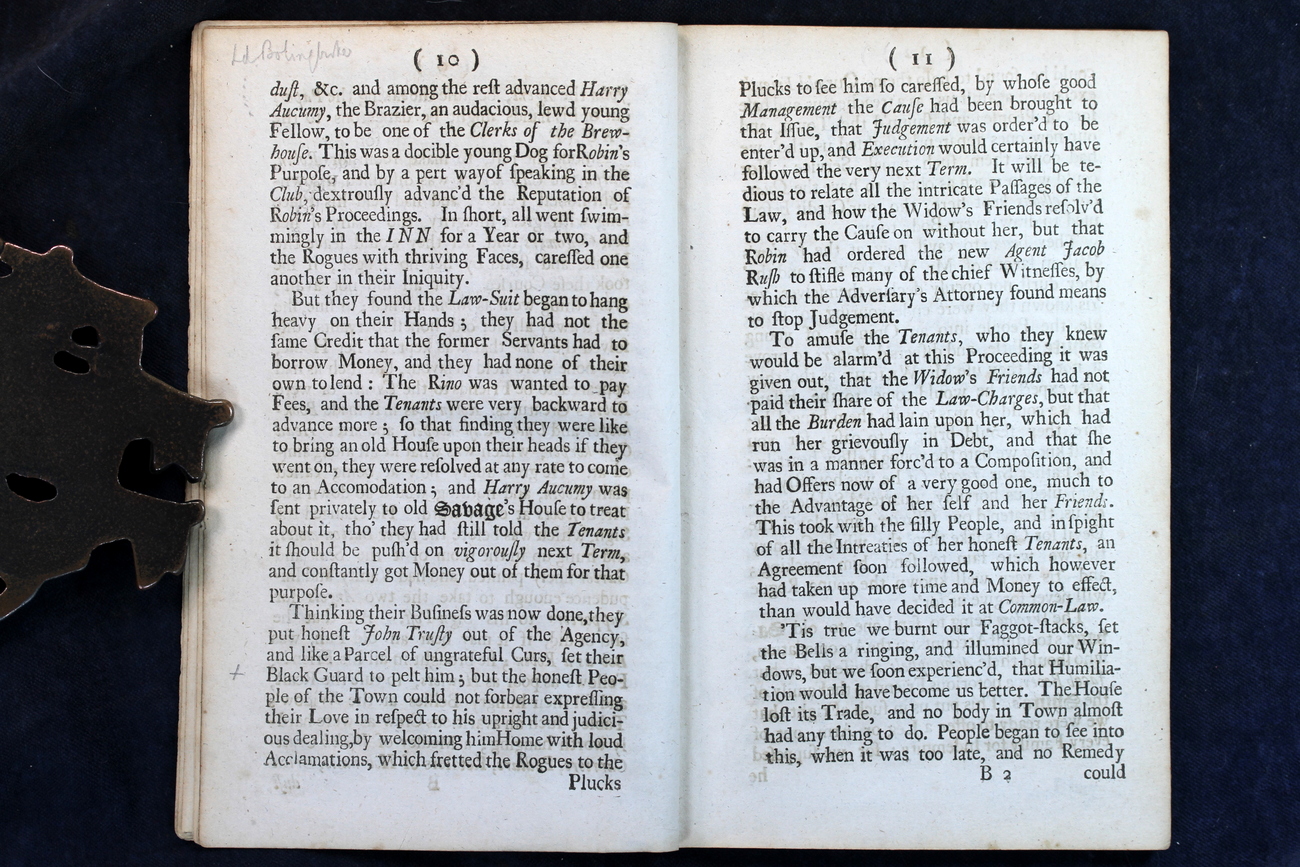 Ld Bolingbroke
( 10 )
duſt, &c. and among the reſt advanced Harry
Aucumy, the Brazier, an audacious, lewd young
Fellow, to be one of the Clerks of the Brew-
houſe. This was a docible young Dog for Robin's
Purpoſe, and by a pert way of ſpeaking in the
Club, dextrouſly advanc'd the Reputation of
Robin's Proceedings. In ſhort, all went ſwim-
mingly in the INN for a Year or two, and
the Rogues with thriving Faces, careſſed one
another in their Iniquity.
But they found the Law-Suit began to hang
heavy on their Hands ; they had not the
ſame Credit that the former Servants had to
borrow Money, and they had none of their
own to lend : The Rino was wanted to pay
Fees, and the Tenants were very backward to
advance more ; ſo that finding they were like
to bring an old Houſe upon their heads if they
went on, they were reſolved at any rate to come
to an Accomodation ; and Harry Aucumy was
ſent privately to old Savage's Houſe to treat
about it, tho' they had ſtill told the Tenants
it ſhould be puſh'd on vigorouſly next Term,
and conſtantly got Money out of them for that
purpoſe.
Thinking their Buſineſs was now done, they
put honeſt John Truſty out of the Agency,
and like a Parcel of ungrateful Curs, ſet their
Black Guard to pelt him ; but the honeſt Peo-
ple of the Town could not forbear expreſſing
their Love in reſpect to his upright and judici-
ous dealing, by welcoming him Home with loud
Acclamations, which fretted the Rogues to the
Plucks
( 11 )
Plucks to ſee him ſo careſſed, by whoſe good
Management the Cauſe had been brought to
that Iſſue, that Judgement was order'd to be
enter'd up, and Execution would certainly have
followed the very next Term. It will be te-
dious to relate all the intricate Paſſages of the
Law, and how the Widow's Friends reſolv'd
to carry the Cauſe on without her, but that
Robin had ordered the new Agent Jacob
Ruſh to ſtifle many of the chief Witneſſes, by
which the Adverſary's Attorney found means
to ſtop Judgement.
To amuſe the Tenants, who they knew
would be alarm'd at this Proceeding it was
given out, that the Widow's Friends had not
paid their ſhare of the Law-Charges, but that
all the Burden had lain upon her, which had
run her grievouſly in Debt, and that ſhe
was in a manner forc'd to a Compoſition, and
had Offers now of a very good one, much to
the Advantage of her ſelf and her Friends.
This took with the ſilly People, and in ſpight
of all the Intreaties of her honeſt Tenants, an
Agreement ſoon followed, which however
had taken up more time and Money to effect,
than would have decided it at Common-Law.
'Tis true we burnt our Faggot-ſtacks, ſet
the Bells a ringing, and illumined our Win-
dows, but we ſoon experienc'd, that Humilia-
tion would have become us better. The Houſe
loſt its Trade, and no body in Town almoſt
had any thing to do. People began to ſee into
this, when it was too late, and no Remedy
B 2 could